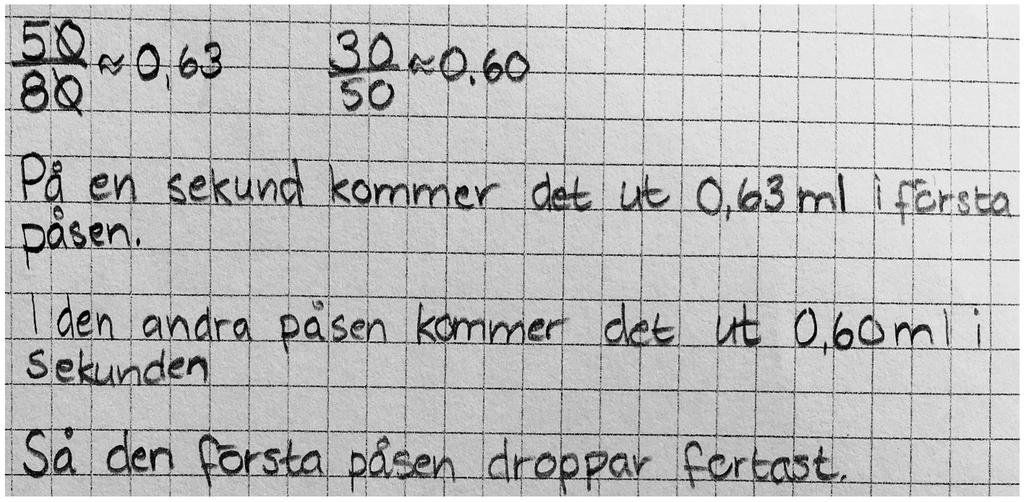 50/80 ≈ 0,63 30/50 ≈ 0.60
På en sekund kommer det ut 0,63 ml i första
påsen.
I den andra påsen kommer det ut 0,60 ml i
sekunden
Så den första påsen droppar fortast.